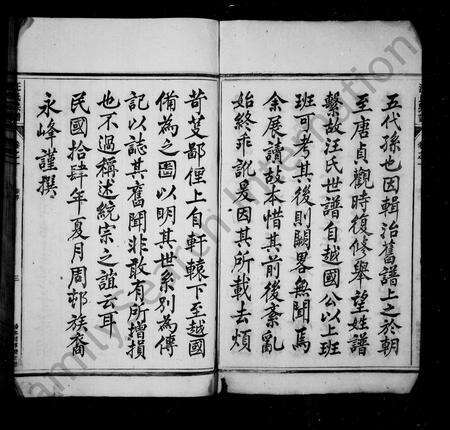 五代孫也因輯治舊譜上之於朝
至唐貞觀時復修舉望姓譜
繫故汪氏世譜自越國公以上班
班可考其後則闕畧無聞焉
余展讀故本惜其前後紊亂
始終非訛是因其所載去煩
苛芟鄙俚上自軒轅下至越國
備為之圖以明其世系別為傳
記以誌其舊聞非敢有所增損
也不過稱述統宗之誼云耳
民國拾肆年夏月周邨族裔
永峰謹撰
FamilySearch International